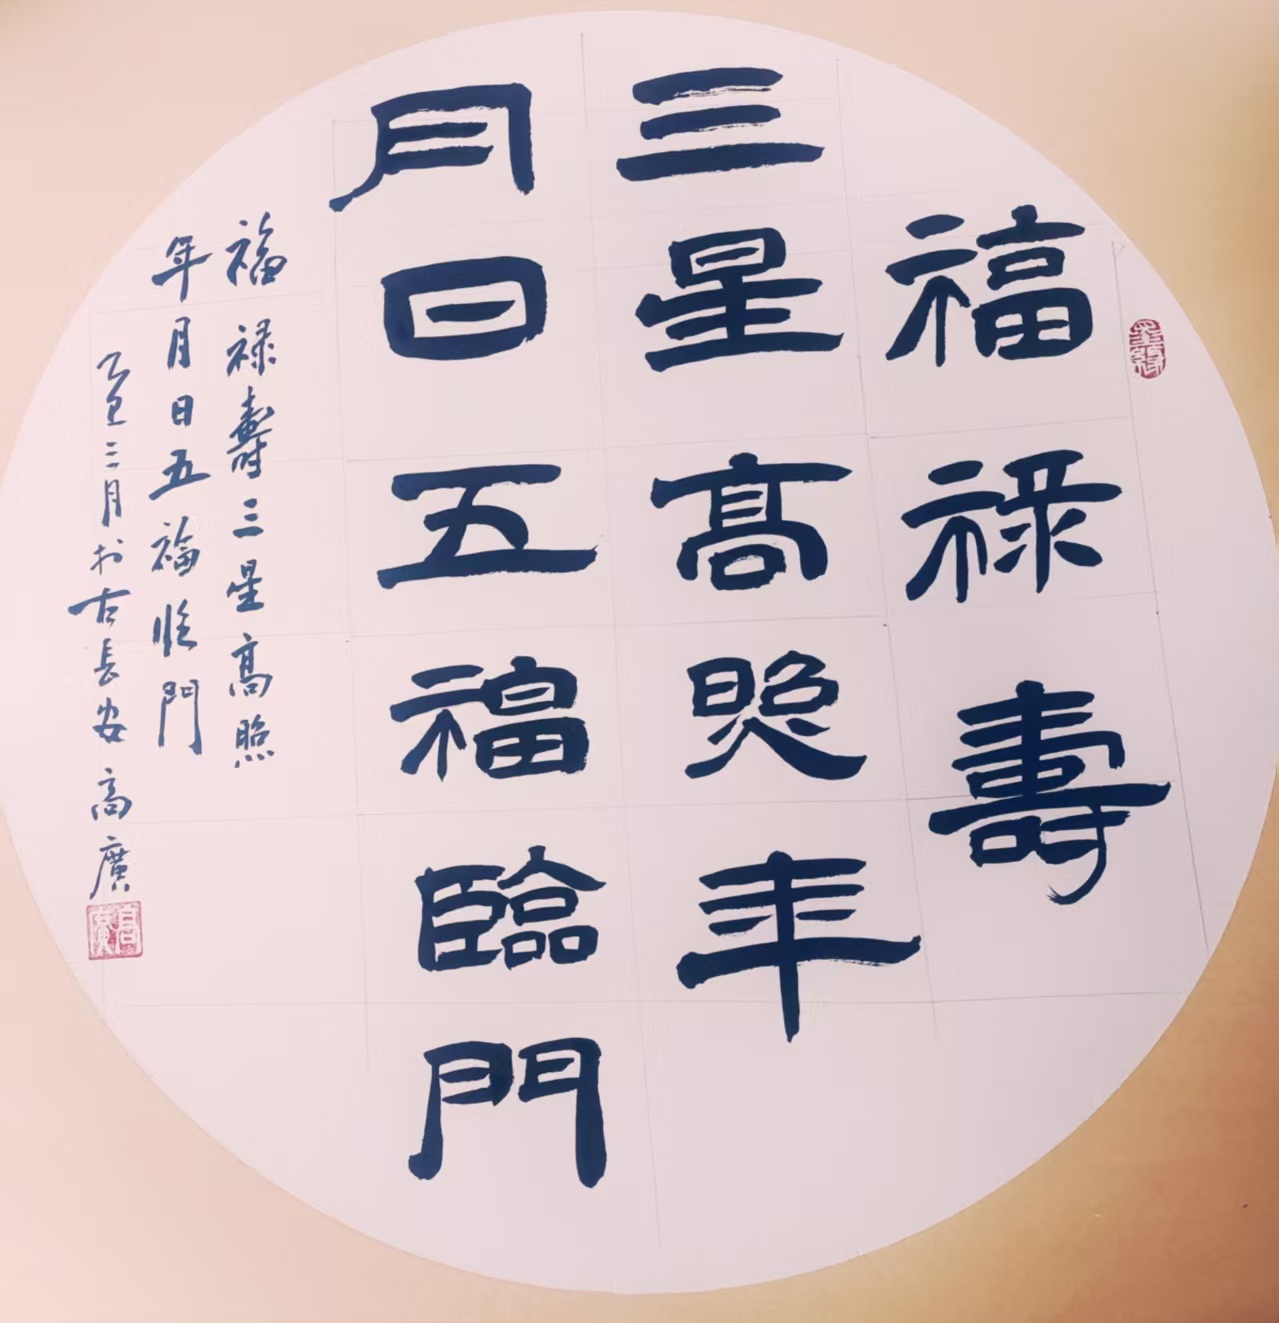 福禄壽
三星高照年
月日五福臨門
福禄壽三星高照
年月日五福临門
乙巳三月於古長安高廣
高廣